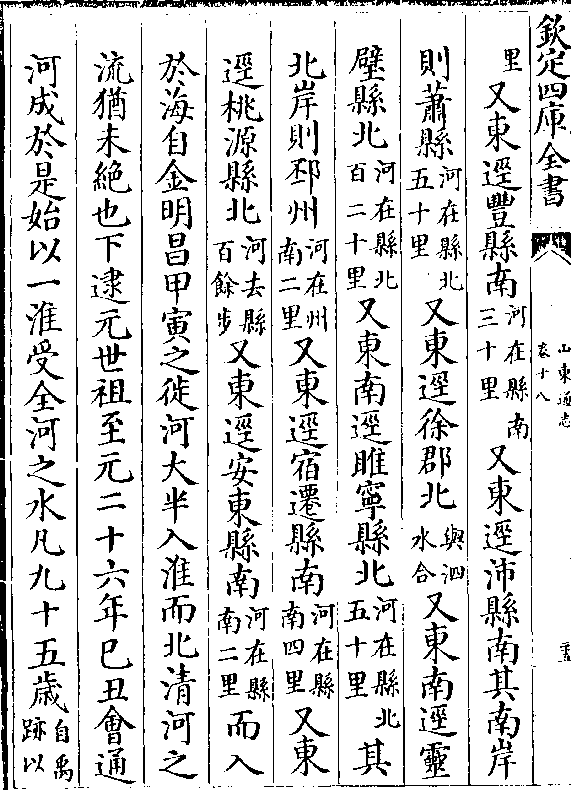 欽定四庫全書
山東通志
卷十八
里又東逕豐縣南河在縣南三十里又東逕沛縣南其南岸
則蕭縣河在縣北五十里又東逕徐郡北與泗水合又東南逕靈
壁縣北河在縣北百二十里又東南逕睢寧縣北河在縣北五十里其
北岸則邳州河在州南二里又東逕宿遷縣南河在縣南四里又東
逕桃源縣北河去縣百餘步又東逕安東縣南河在縣南二里而入
於海自金明昌甲寅之徙河大半入淮而北清河之
流猶未絕也下逮元世祖至元二十六年巳丑會通
河成於是始以一淮受全河之水凡九十五歲自禹跡以